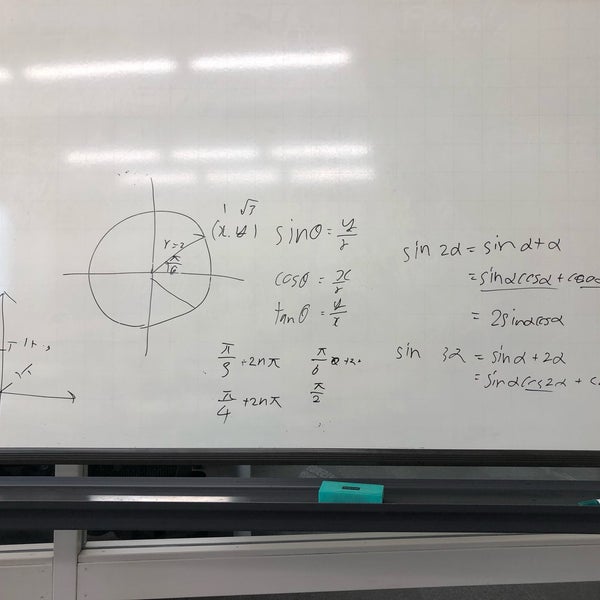 1 √3
(x. y)
r=2
π/6
sinθ = y/r
cosθ = x/r
tanθ = y/x
π/3 +2nπ
π/4 +2nπ
π/6
π/2
sin 2α = sin α+α
= sinαcosα + co
= 2sinαcosα
sin 3α = sinα+2α
= sinαcos2α + c